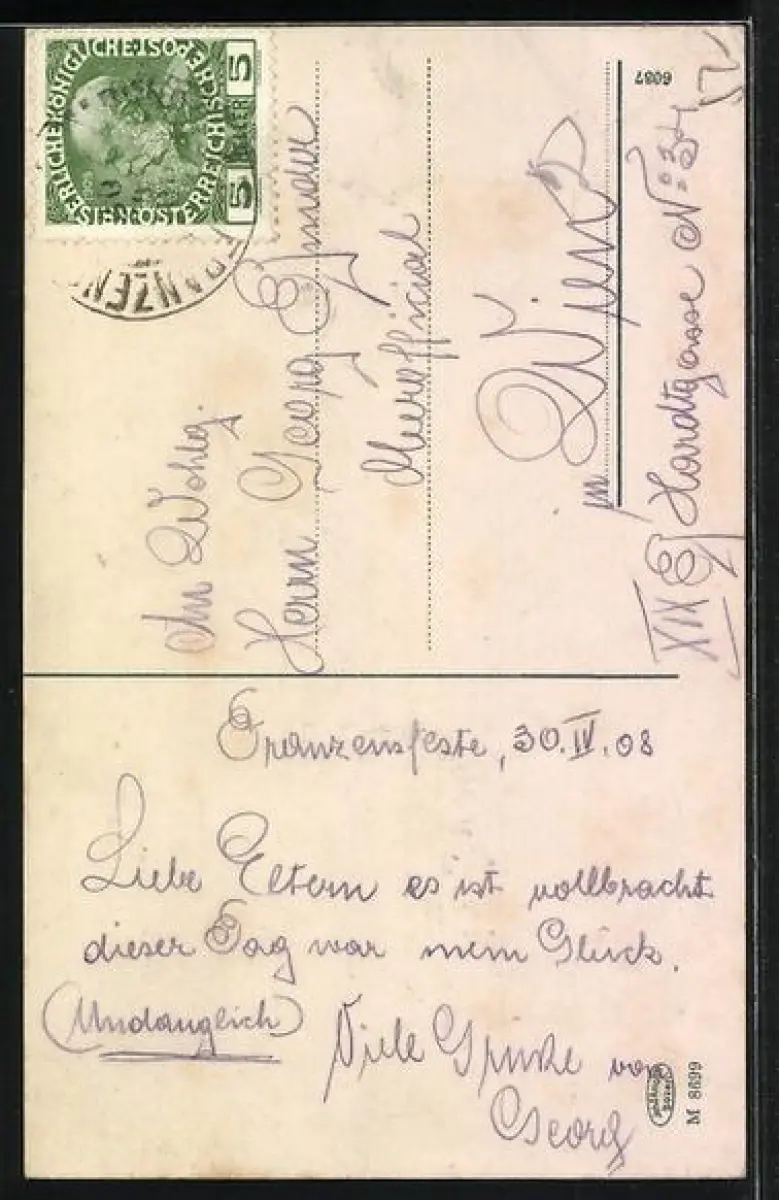 KAISERLICHE KÖNIGLICHE ÖSTERREICHISCHE POST
5 HELLER 5
FRANZEN
An Wohlg.
Herrn Georg
in Wien
XIX Hardtgasse No: 34
6087
Franzensfeste, 30. IV. 08
Liebe Eltern es ist vollbracht
dieser Tag war mein Glück.
(Undanglich)
Viele Grüße von
Georg
M 8699